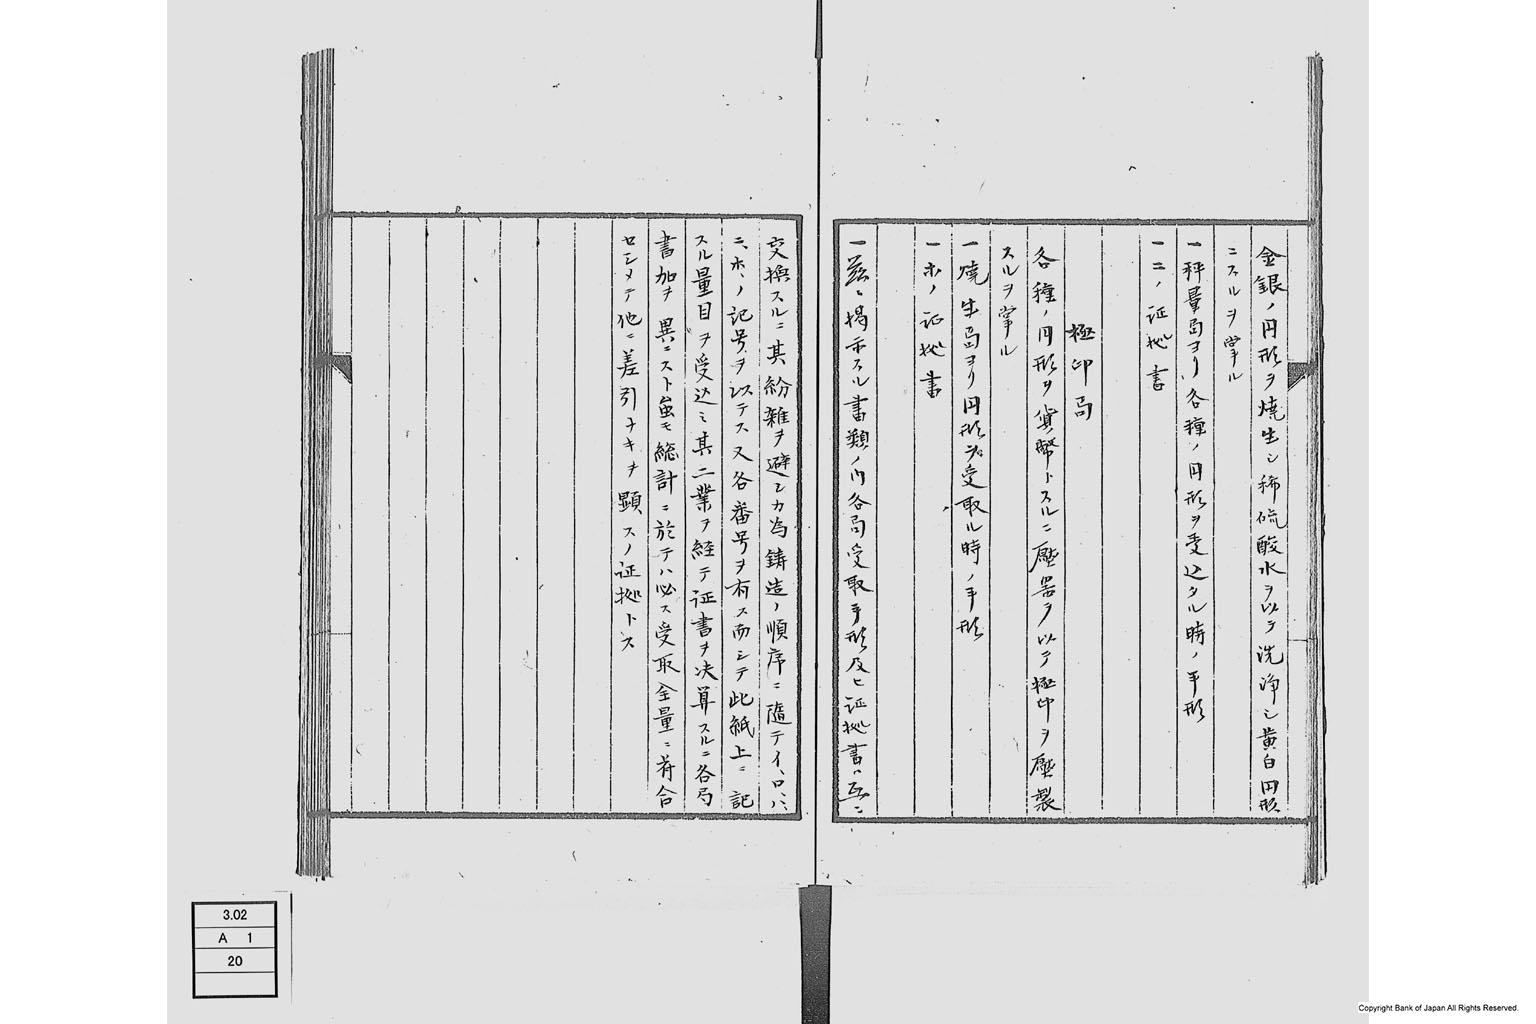 金銀ノ円形ヲ焼生シ稀硫酸水ヲ以テ洗浄シ黄白円形
ニスルヲ掌ル
一秤量局ヨリ各種ノ円形ヲ受込タル時ノ手形
一ニノ証拠書
極印局
各種ノ円形ヲ貨幣トスルニ壓器ヲ以テ極印ヲ壓製
スルヲ掌ル
一焼生局ヨリ円形ヲ受取ル時ノ手形
一ホノ証拠書
一茲ニ掲示スル書類ノ内各局受取手形及ヒ証拠書ハ互ニ
交換スルニ其紛雑ヲ避ンカ為鋳造ノ順序ニ随テイ、ロ、ハ、
ニ、ホ、ノ記号ヲ以テス又各番号ヲ有ス而シテ此紙上ニ記
スル量目ヲ受込ミ其二業ヲ経テ証書ヲ决算スルニ各局
書加ヲ異ニスト虽モ総計ニ於テハ必ス受取全量ニ符合
セシメテ他ニ差引ナキヲ顕スノ証拠トス
3.02
A 1
20
Copyright Bank of Japan All Rights Reserved.